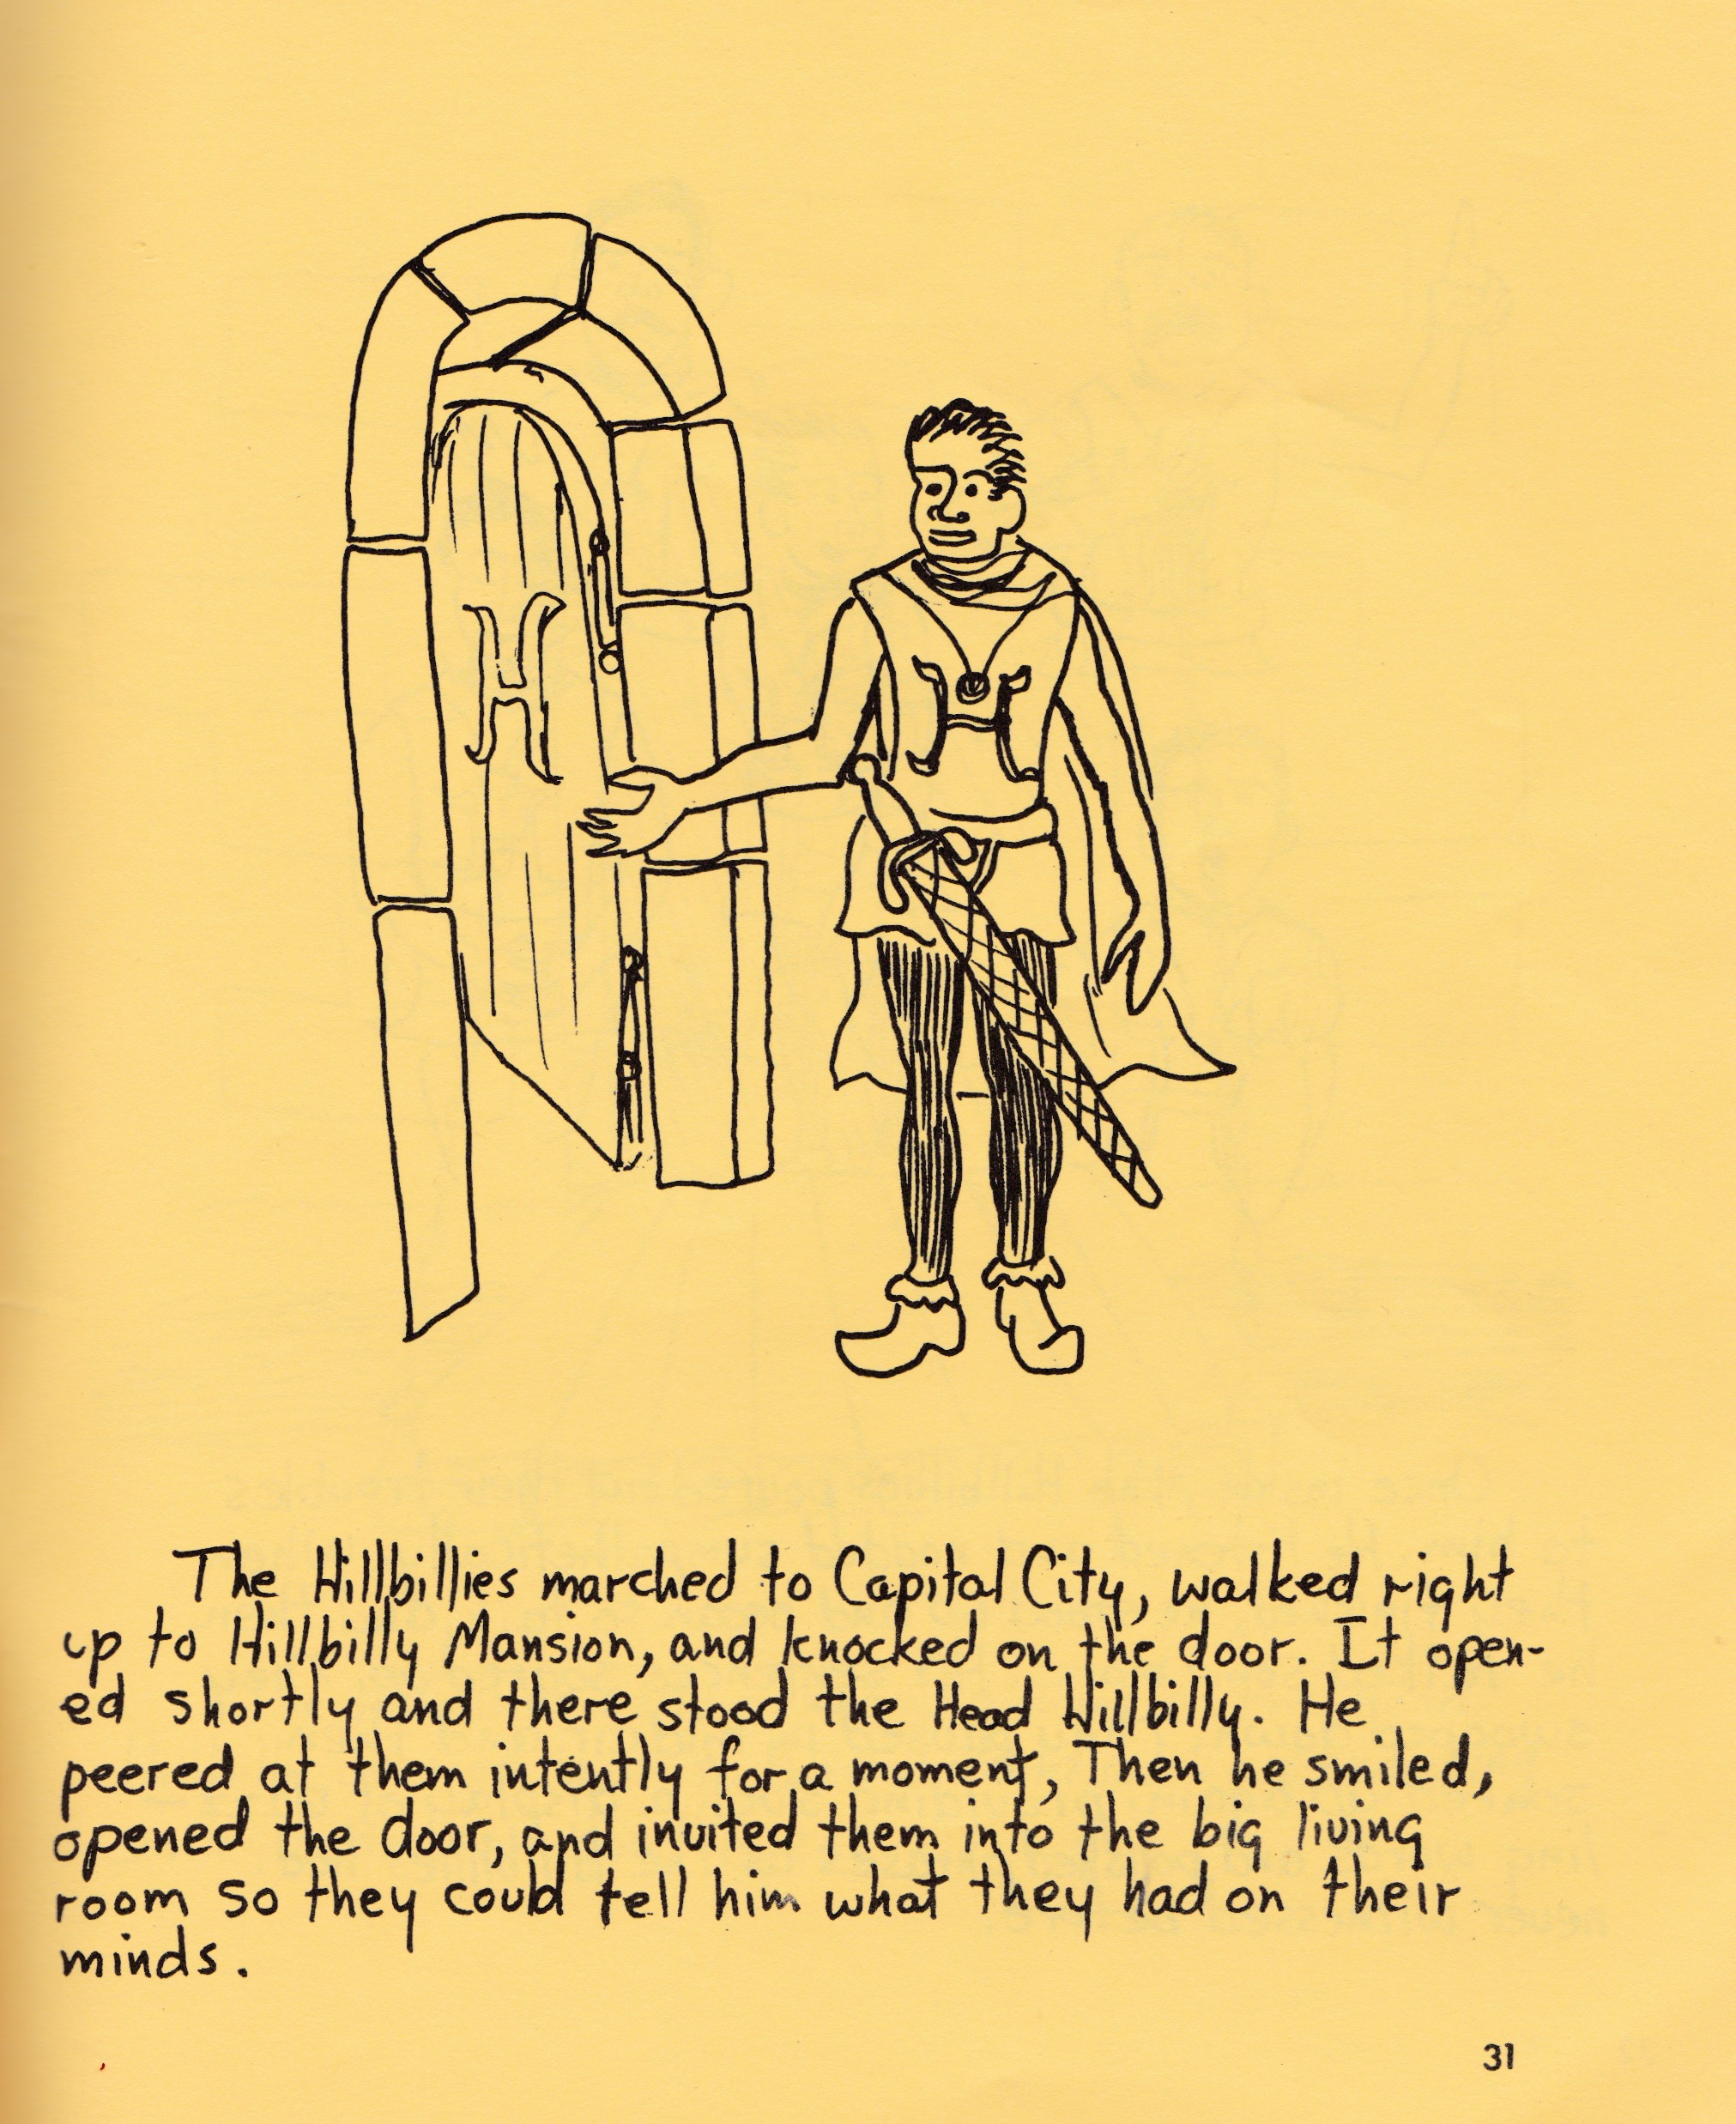 H
H
The Hillbillies marched to Capital City, walked right
up to Hillbilly Mansion, and knocked on the door. It open-
ed shortly and there stood the Head Hillbilly. He
peered at them intently for a moment, Then he smiled,
opened the door, and invited them into the big living
room so they could tell him what they had on their
minds.
31